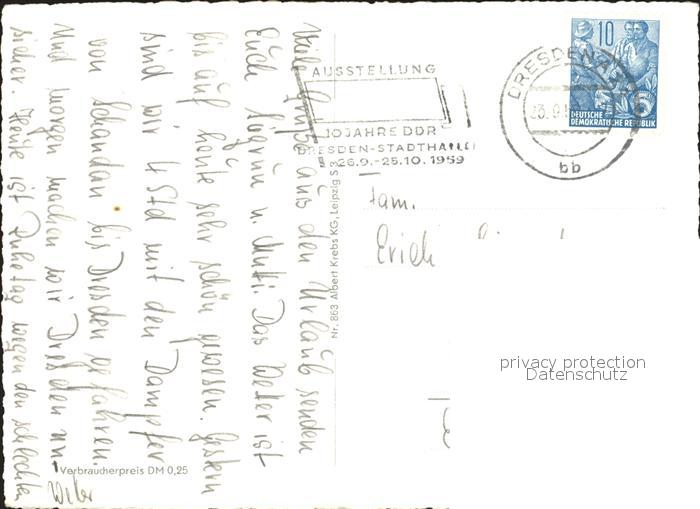 Viele Grüße aus den Urlaub senden
Euch Sigrun u. Mutti. Das Wetter ist
bis auf heute sehr schön gewesen. Gestern
sind wir 4 Std mit den Dampfer
von Schandau bis Dresden gefahren.
Und morgen machen wir Dresden un-
sicher. Heute ist Ruhetag wegen den schlechten
Weter
AUSSTELLUNG
10 JAHRE DDR
DRESDEN-STADTHALLE
26.9.-25.10.1959
DRESDEN
bb
10
5
DEUTSCHE
DEMOKRATISCHE REPUBLIK
Nr. 863 Albert Krebs KG, Leipzig S 3
Fam.
Erich
privacy protection
Datenschutz
Verbraucherpreis DM 0,25